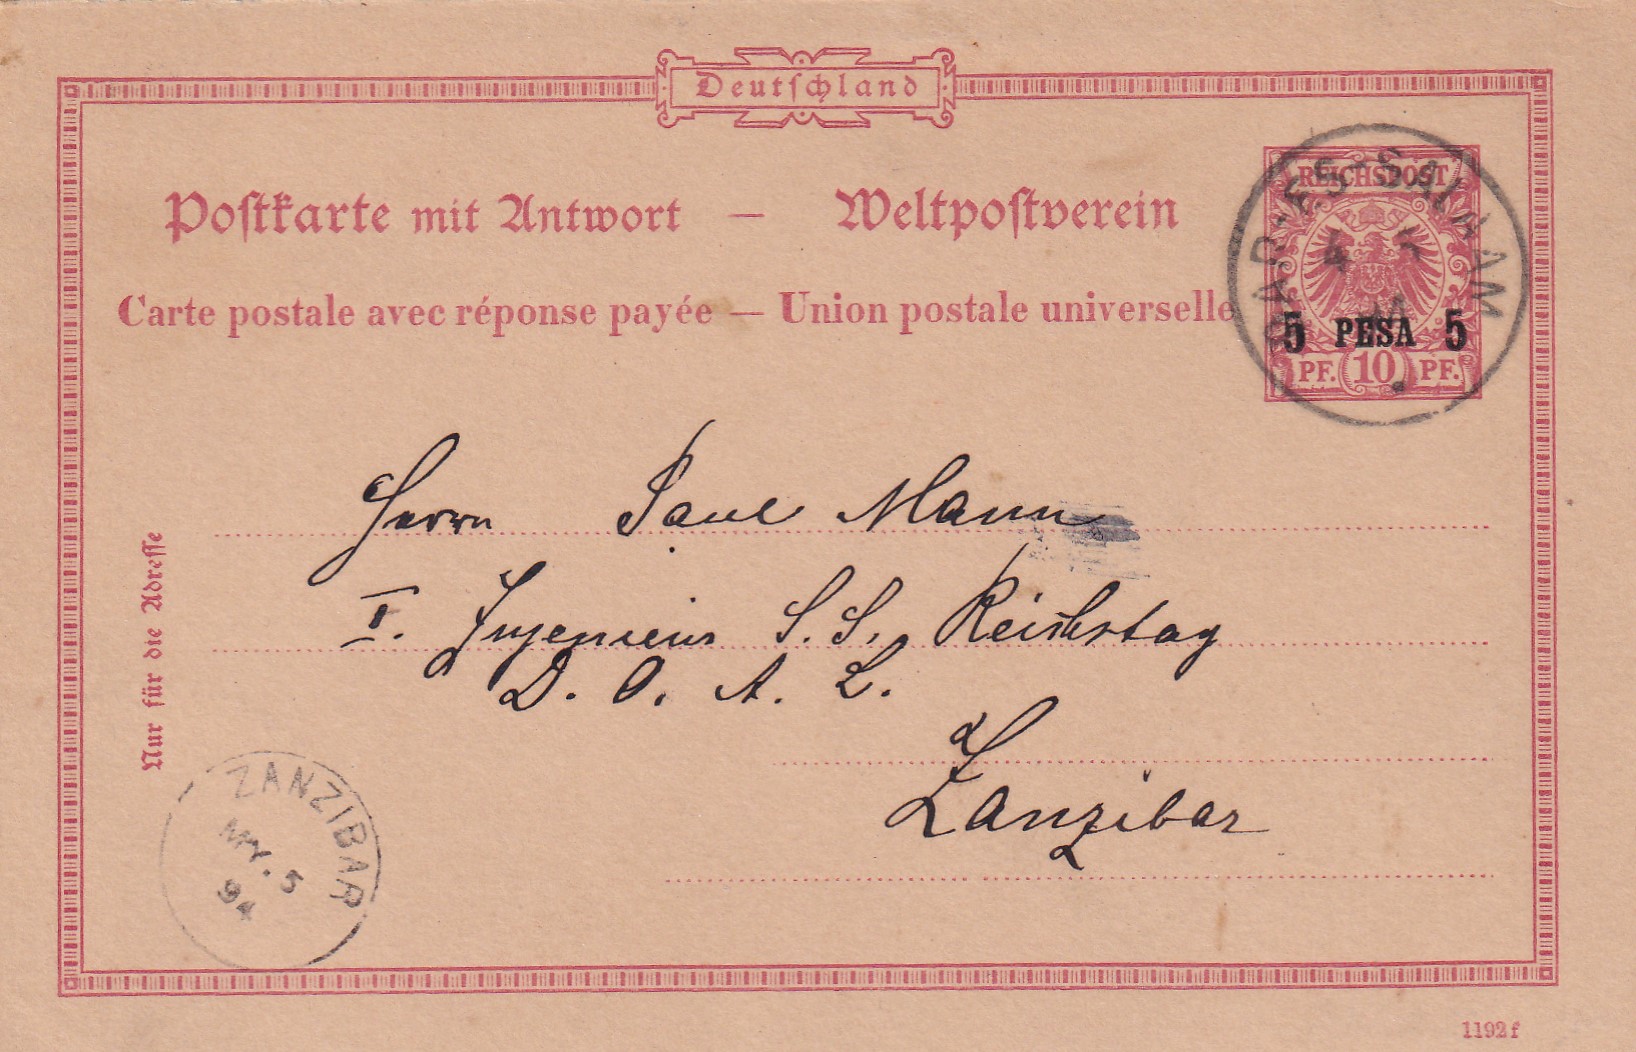 Deutschland
Postkarte mit Antwort — Weltpostverein
Carte postale avec réponse payée — Union postale universelle
REICHSPOST
5 PESA 5
PF. 10 PF.
DAR-ES-SALAAM
4 5
Herrn Paul Mann
I. Ingenieur S.S. Reichstag
D. O. A. L.
Zanzibar
Nur für die Adresse
ZANZIBAR
MY. 5
94
1192f